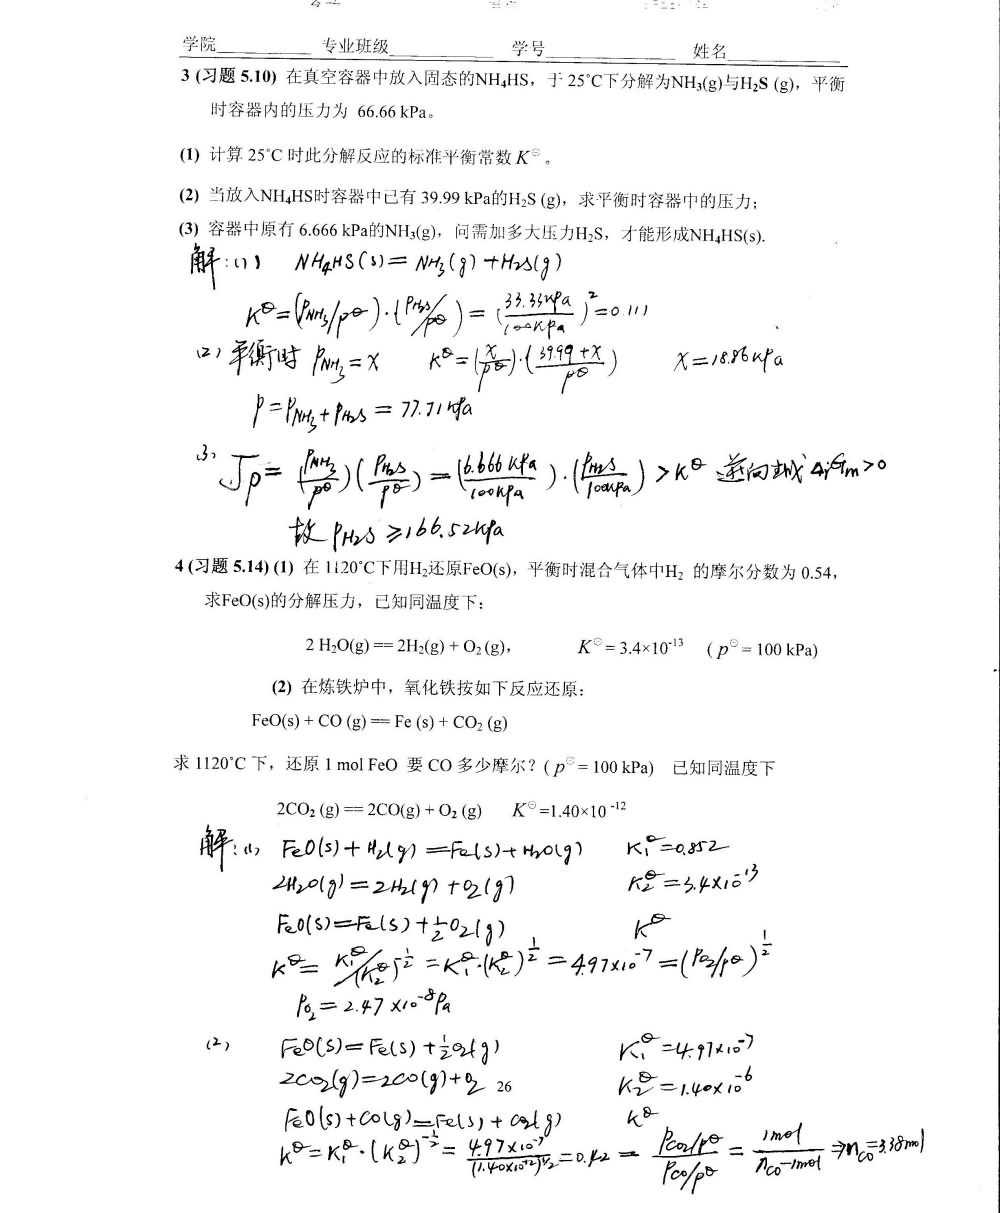 学院 专业班级 学号 姓名
3 (习题 5.10) 在真空容器中放入固态的NH₄HS，于 25˚C下分解为NH₃(g)与H₂S (g)，平衡
时容器内的压力为 66.66 kPa。
(1) 计算 25˚C 时此分解反应的标准平衡常数 K^⊖ 。
(2) 当放入NH₄HS时容器中已有 39.99 kPa的H₂S (g)，求平衡时容器中的压力；
(3) 容器中原有 6.666 kPa的NH₃(g)，问需加多大压力H₂S，才能形成NH₄HS(s).
解：(1) NH₄HS(s) = NH₃(g) + H₂S(g)
K^⊖ = (P_NH₃/p^⊖)·(P_H₂S/p^⊖) = (33.33kPa/100kPa)² = 0.111
(2) 平衡时 P_NH₃ = X K^⊖ = (X/p^⊖)·(39.99+X/p^⊖) X = 18.86kPa
P = P_NH₃ + P_H₂S = 77.71kPa
3) J_p = (P_NH₃/p^⊖)(P_H₂S/p^⊖) = (6.666kPa/100kPa)·(P_H₂S/100kPa) > K^⊖ 逆向 ΔrGm>0
故 P_H₂S ≥ 166.52kPa
4 (习题 5.14) (1) 在 1120˚C下用H₂还原FeO(s)，平衡时混合气体中H₂ 的摩尔分数为 0.54，
求FeO(s)的分解压力，已知同温度下：
2 H₂O(g) == 2H₂(g) + O₂ (g)， K^⊖ = 3.4×10⁻¹³ ( p^⊖ = 100 kPa)
(2) 在炼铁炉中，氧化铁按如下反应还原：
FeO(s) + CO (g) == Fe (s) + CO₂ (g)
求 1120˚C 下，还原 1 mol FeO 要 CO 多少摩尔？( p^⊖ = 100 kPa) 已知同温度下
2CO₂ (g) == 2CO(g) + O₂ (g) K^⊖ =1.40×10 ⁻¹²
解：(1) FeO(s) + H₂(g) = Fe(s) + H₂O(g) K₁^⊖ = 0.852
2H₂O(g) = 2H₂(g) + O₂(g) K₂^⊖ = 3.4×10⁻¹³
FeO(s) = Fe(s) + ½O₂(g) K^⊖
K^⊖ = K₁^⊖/(K₂^⊖)^(-1/2) = K₁^⊖·(K₂^⊖)^(1/2) = 4.97×10⁻⁷ = (P_O₂/p^⊖)^(1/2)
P_O₂ = 2.47×10⁻⁸Pa
(2) FeO(s) = Fe(s) + ½O₂(g) K₁^⊖ = 4.97×10⁻⁷
2CO₂(g) = 2CO(g) + O₂ 26 K₂^⊖ = 1.40×10⁻⁶
FeO(s) + CO(g) = Fe(s) + CO₂(g) K^⊖
K^⊖ = K₁^⊖·(K₂^⊖)^(-1/2) = 4.97×10⁻⁷/(1.40×10⁻¹²)^(1/2) = 0.42 = (P_CO₂/p^⊖)/(P_CO/p^⊖) = 1mol/(n_CO-1mol) ⇒ n_CO = 3.38mol